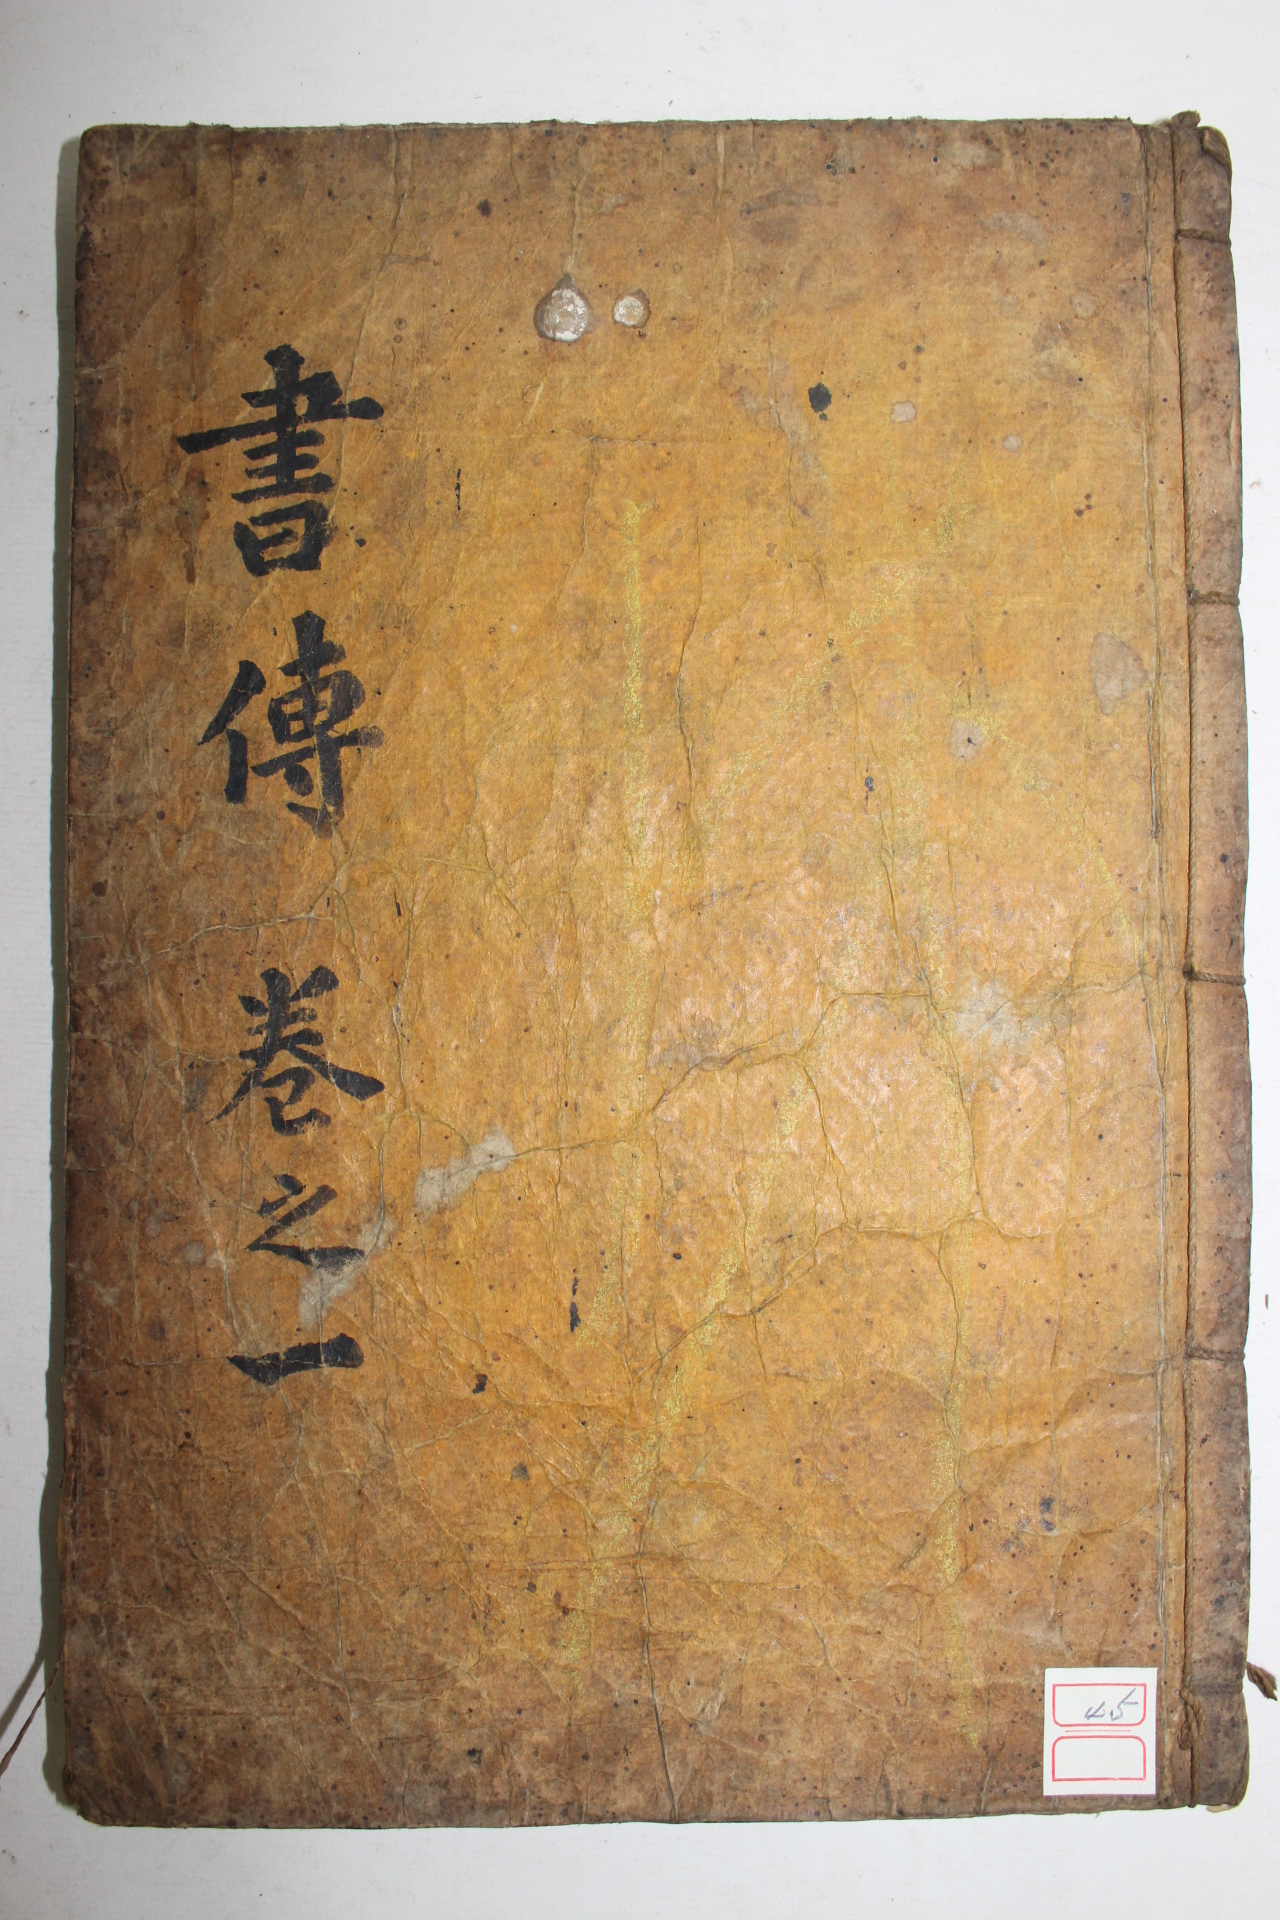 書傳 卷之一
45